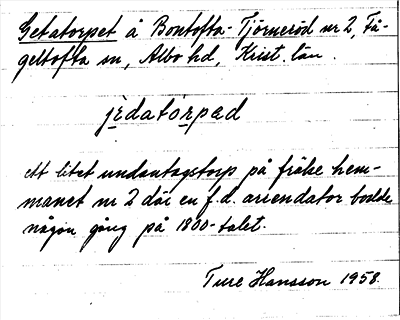 Getatorpet å Bontofta-Tjörneröd nr 2, Få-
geltofta sn, Albo hd, Krist. län.
jèdatórpəd
ett litet undantagstorp på frälse hem-
manet nr 2 där en f.d. arrendator bodde
någon gång på 1800-talet.
Ture Hansson 1958.